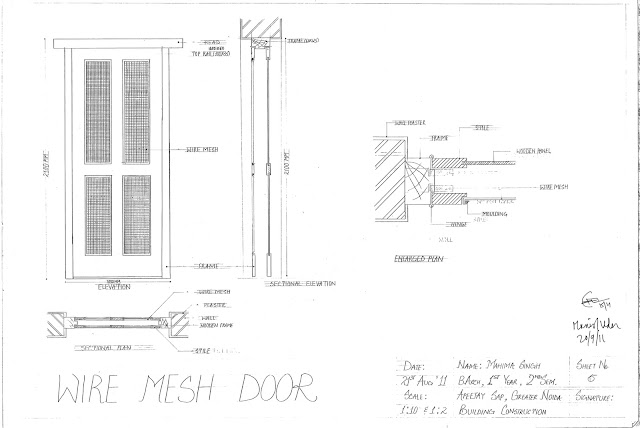 HEAD
TOP RAIL
FRAME
2100 MM
WIRE MESH
2100 MM
FRAME
ELEVATION
SECTIONAL ELEVATION
WIRE MESH
PLASTER
WALL
WOODEN FRAME
SECTIONAL PLAN
STILE
WIRE MESH DOOR
PLASTER
FRAME
STILE
WOODEN PANEL
WIRE MESH
MOULDING
HINGE
ENLARGED PLAN
20/9/11
DATE:
21ST AUG '11
SCALE:
1:10 & 1:2
NAME: MAHIMA SINGH
B.ARCH, 1ST YEAR, 2ND SEM.
APEEJAY SAP, GREATER NOIDA
BUILDING CONSTRUCTION
SHEET NO.
SIGNATURE: